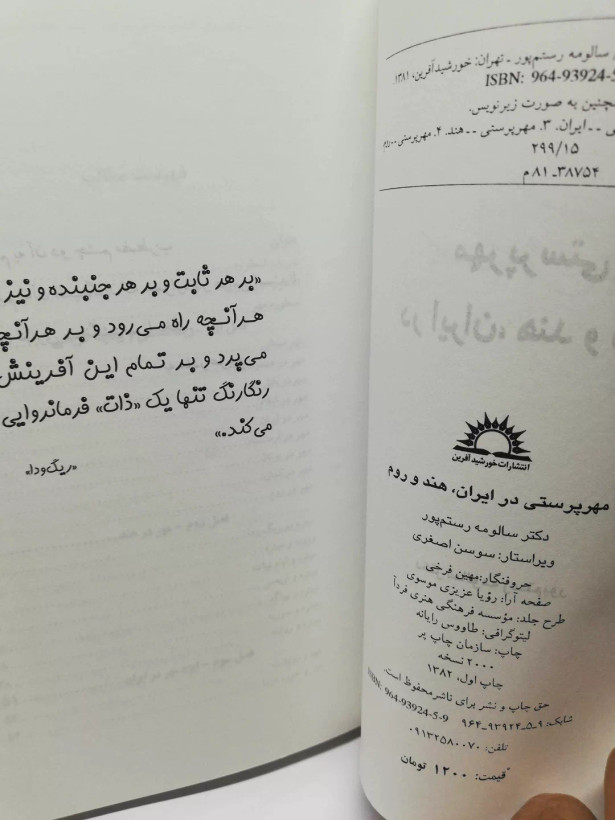 سالومه رستم‌پور - تهران: خورشیدآفرین، ۱۳۸۱
ISBN: 964-93924-5
چنین به صورت زیرنویس.
- - ایران. ۳. مهرپرستی - - هند. ۴. مهرپرستی - - روم
۲۹۹/۱۵
۳۸۷۵۴-۸۱م
انتشارات خورشید آفرین
مهرپرستی در ایران، هند و روم
دکتر سالومه رستم‌پور
ویراستار: سوسن اصغری
حروفنگار: مهین فرخی
صفحه آرا: رؤیا عزیزی موسوی
طرح جلد: مؤسسه فرهنگی هنری فردآ
لیتوگرافی: طاووس رایانه
چاپ: سازمان چاپ پر
۲۰۰۰ نسخه
چاپ اول، ۱۳۸۲
حق چاپ و نشر برای ناشر محفوظ است.
شابک: ۹-۵-۹۳۹۲۴-۹۶۴ ISBN: 964-93924-5-9
تلفن: ۰۹۱۳۲۵۸۰۰۷۰
قیمت: ۱۲۰۰ تومان
«بر هر ثابت و بر هر جنبنده و نیز
هرآنچه راه می‌رود و بر هرآنچه
می‌پرد و بر تمام این آفرینش
رنگارنگ تنها یک «ذات» فرمانروایی
می‌کند.»
«ریگ‌ودا»